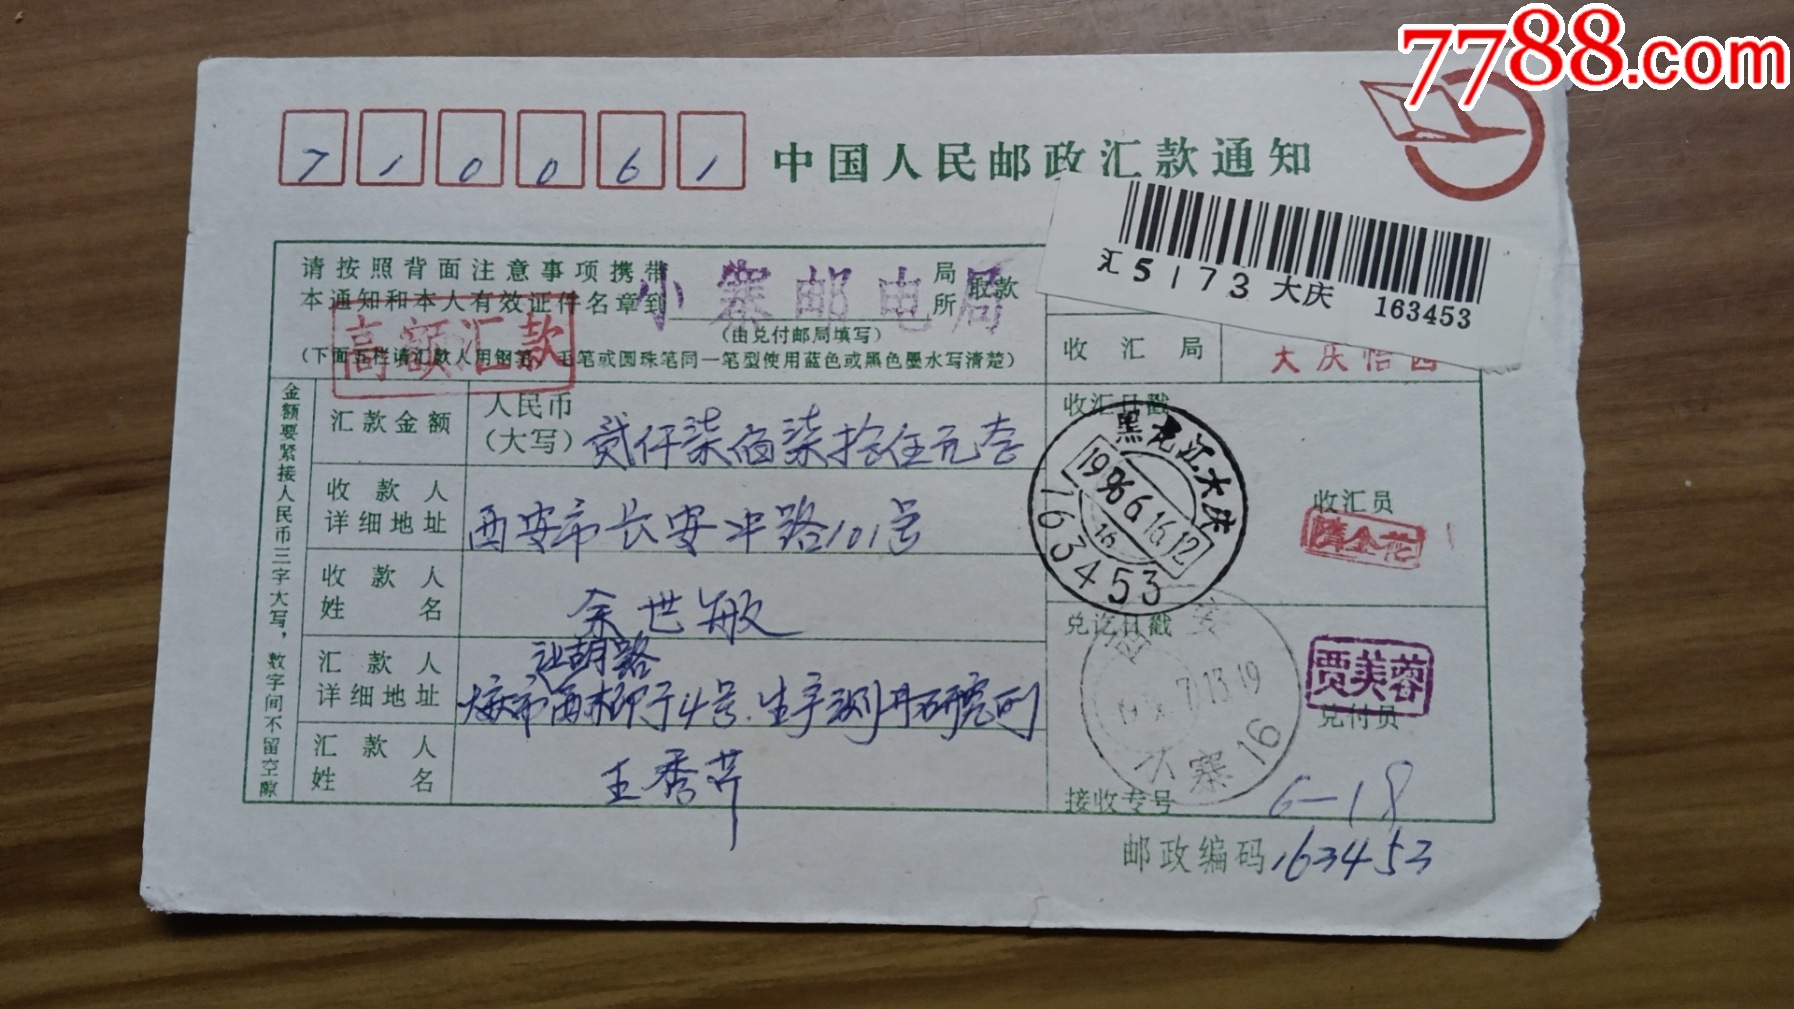 7788.com
710061
中国人民邮政汇款通知
汇 5173 大庆 163453
请按照背面注意事项携带
本通知和本人有效证件名章到
小寨邮电局
局
所
取款
(由兑付邮局填写)
高额汇款
(下面五栏请汇款人用钢笔、毛笔或圆珠笔同一笔型使用蓝色或黑色墨水写清楚)
收汇局
大庆怡园
金额要紧接人民币三字大写,数字间不留空隙
汇款金额
人民币
(大写)
贰仟柒佰柒拾伍元杏
收款人
详细地址
西安市长安中路101号
收款人
姓名
余世敏
汇款人
详细地址
大庆市西柳街4号.生产测井研究所
汇款人
姓名
王秀芹
收汇日戳
黑龙江大庆
1996.6.16.12
16
163453
收汇员
兑讫日戳
西安
7.13.19
小寨16
贾芙蓉
兑付员
接收专号
6-18
邮政编码163453